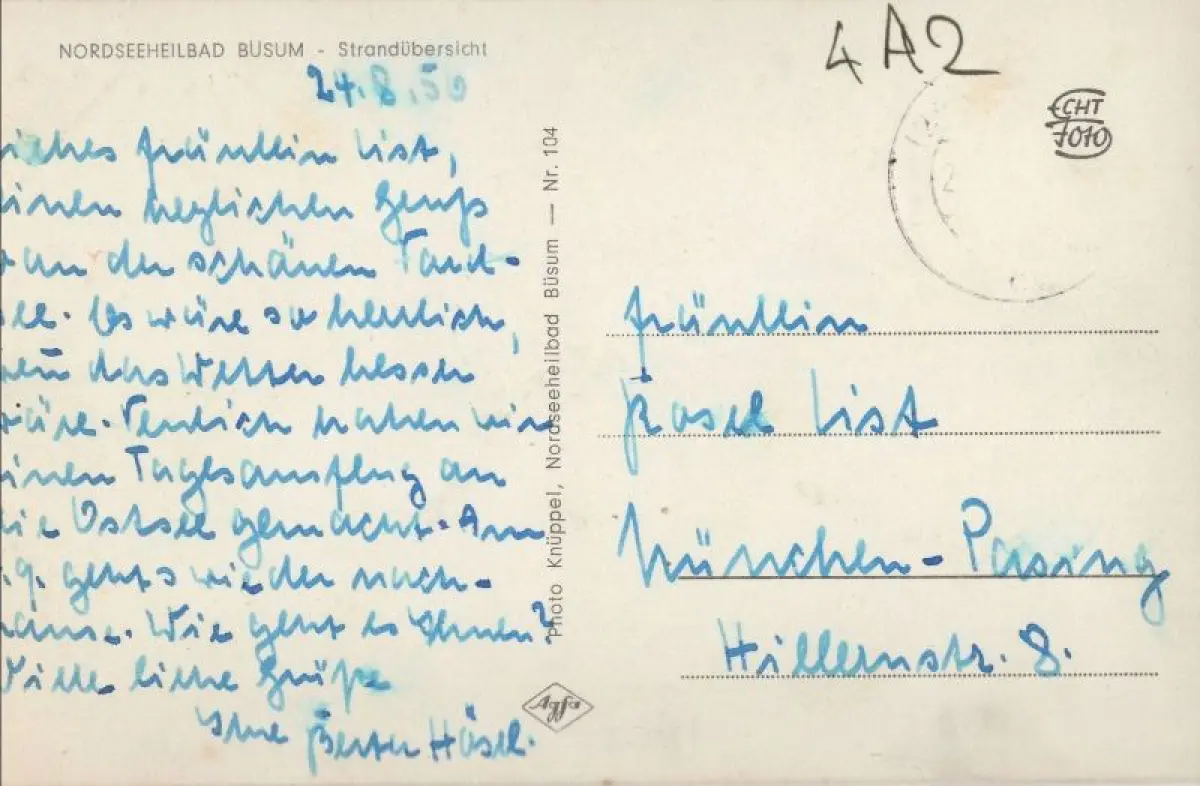 NORDSEEHEILBAD BÜSUM - Strandübersicht
24.8.50
iebes Fräulein List,
inen herzlichen Gruß
an der schönen Nord-
ee. Es wäre so herrlich,
wenn das Wetter besser
wäre. Neulich haben wir
inen Tagesausflug an
ie Ostsee gemacht. Am
.9. geht's wieder nach-
hause. Wie geht es Ihnen?
Viele liebe Grüße
Ihre
Photo Knüppel, Nordseeheilbad Büsum — Nr. 104
Agfa
4A2
ECHT
FOTO
Fräulein
List
München-Pasing
Hillernstr. 8.